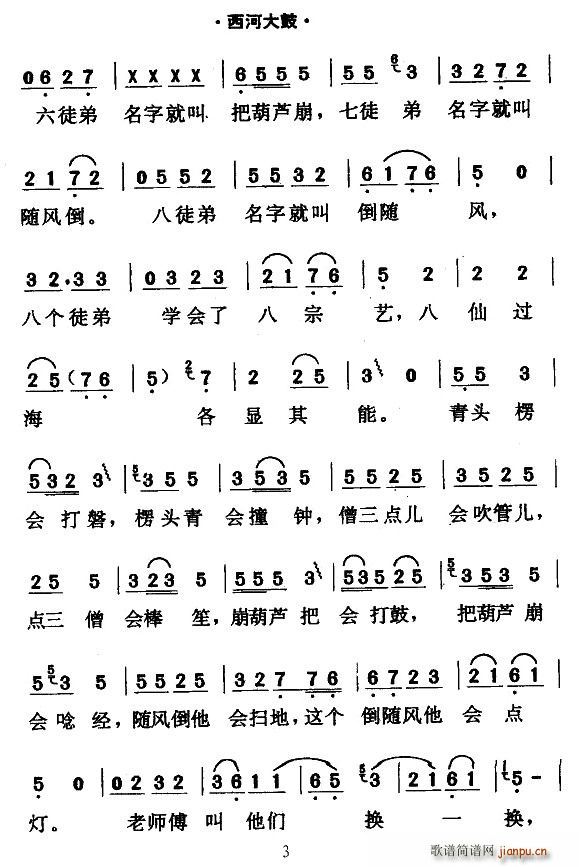 ·西河大鼓·
0627 | X X X X | 6555 | 55 6 3 | 3272 |
六徒弟 名字就叫 把葫芦崩，七徒 弟 名字就叫
2172 | 0552 | 5532 | 6176 | 5 0 |
随风倒。 八徒弟 名字就叫 倒随 风，
32·33 | 0323 | 2176 | 5 2 | 2 2 |
八个徒弟 学会了 八宗 艺，八 仙 过
25(76 | 5) 2 7 | 2 25 | 3 0 | 55 3 |
海 各 显 其 能。 青头 楞
532 3 | 5 3 5 5 | 3 53 5 | 5525 | 3525 |
会 打 磬，楞头青 会 撞 钟，僧三点儿 会吹管儿，
25 5 | 323 5 | 3555 3 | 53525 | 5 3535 |
点三 僧 会棒 笙，崩葫芦 把 会 打鼓， 把葫芦 崩
5 5 3 5 | 5525 | 327 76 | 6723 | 2161 |
会 唸 经，随风倒他 会扫地，这个 倒随风他 会 点
5 0 | 0232 | 3611 | 65 5 3 | 2161 | 1 5 - |
灯。 老师傅 叫 他们 换 一 换，
3
歌谱简谱网
jianpu.cn